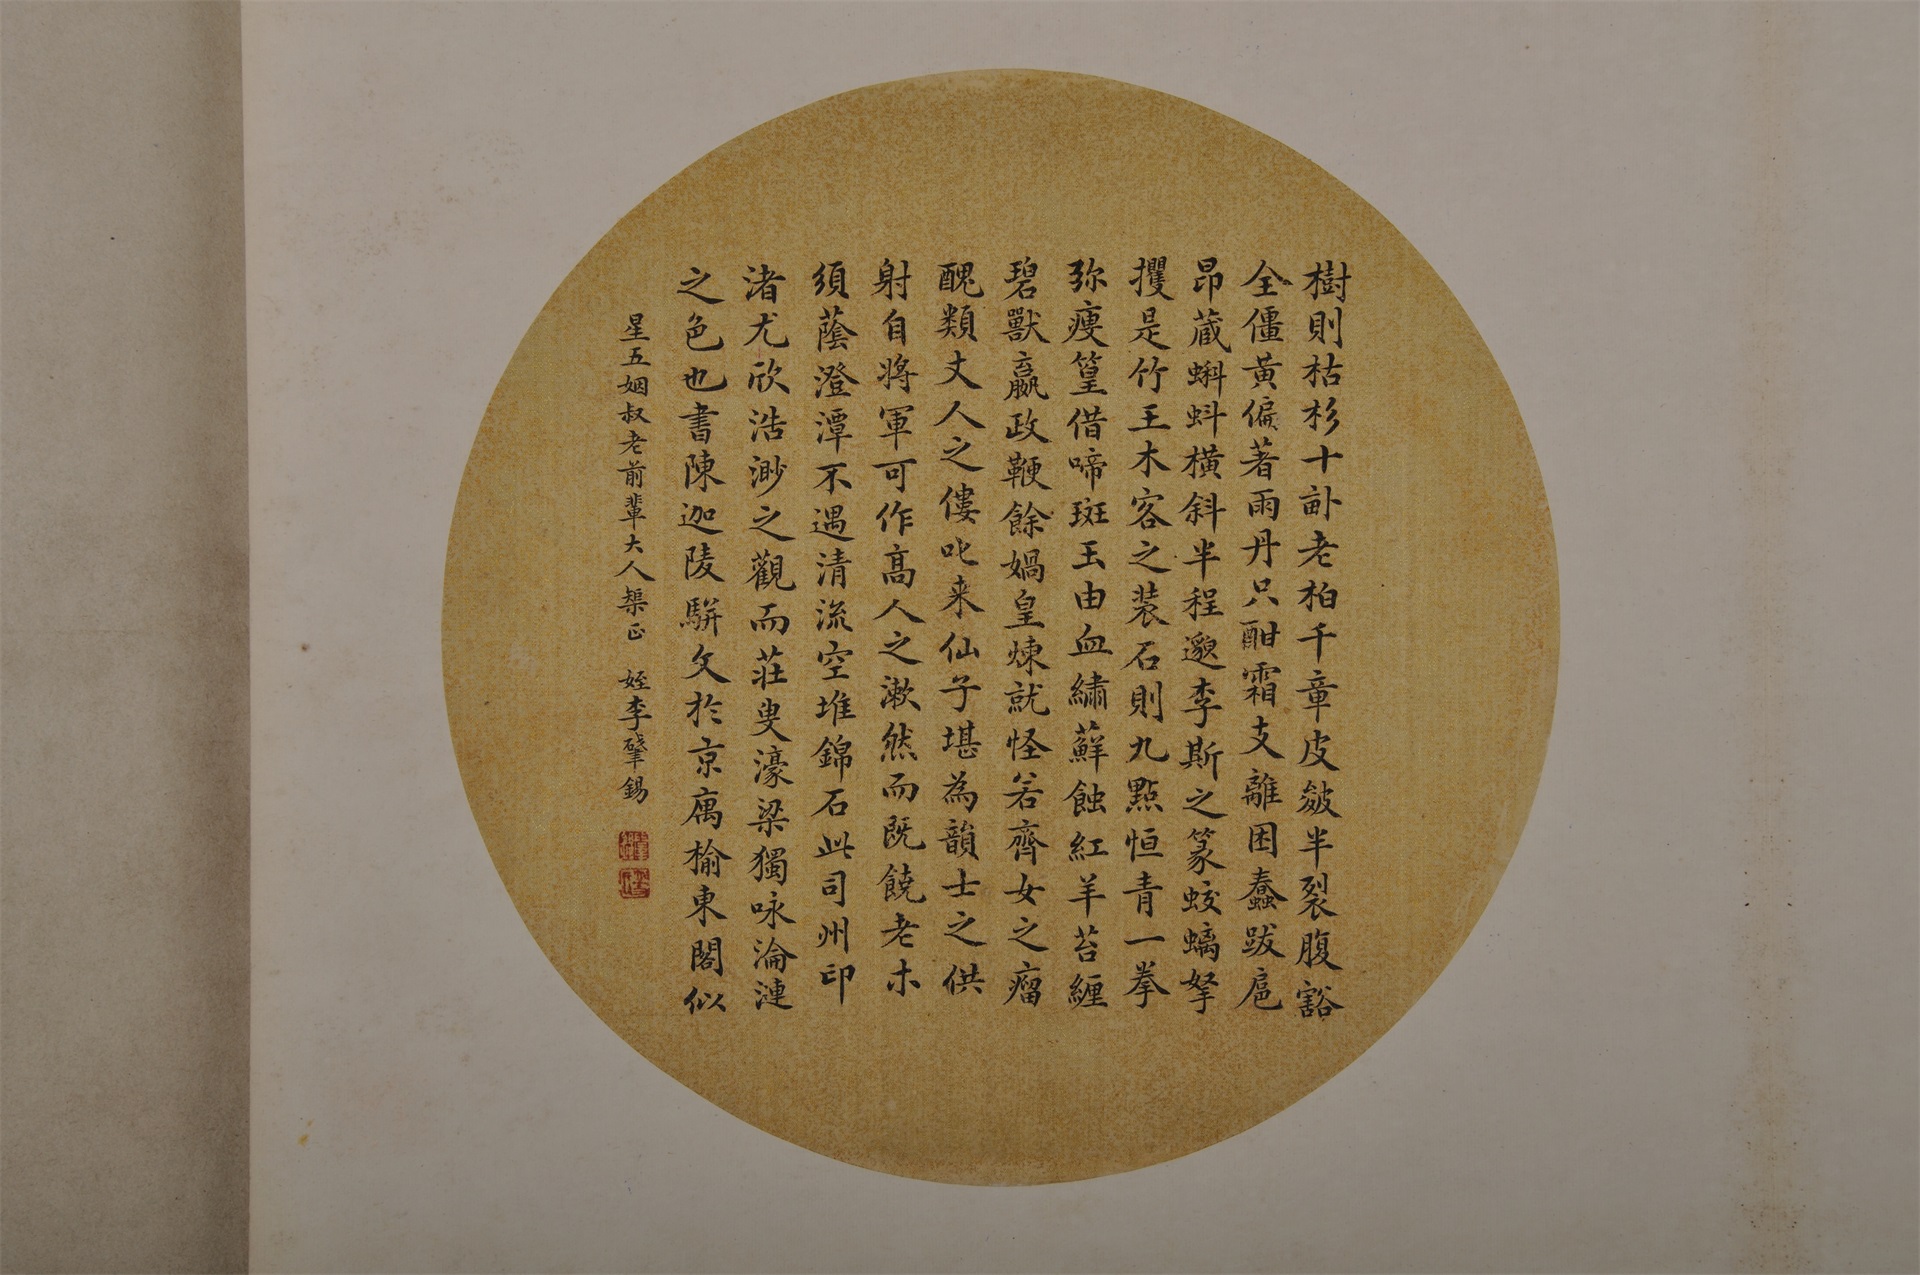 樹則枯杉十畝老柏千章皮皴半裂腹豁
全僵黃偏著雨丹只酣霜支離困蠢跋扈
昂藏蝌蚪橫斜半程邈李斯之篆蛟螭拏
攫是竹王木客之裝石則九點恒青一拳
弥瘦篁借啼斑玉由血繡蘚蝕紅羊苔纏
碧獸嬴政鞭餘媧皇煉就怪若齊女之瘤
醜類丈人之僂叱来仙子堪為韻士之供
射自將軍可作高人之漱然而既饒老木
須蔭澄潭不遇清流空堆錦石此司州印
渚尤欣浩渺之觀而莊叟濠梁獨咏淪漣
之色也書陳迦陵駢文於京寓榆東閣似
星五姻叔老前輩大人榘正 姪李肇錫